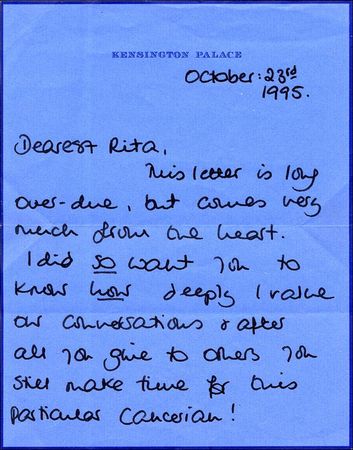 KENSINGTON PALACE
October: 23rd
1995.
Dearest Rita,
This letter is long
over-due, but comes very
much from the heart.
I did so want you to
know how deeply I value
our conversations & after
all you give to others you
still make time for this
particular Cancerian!